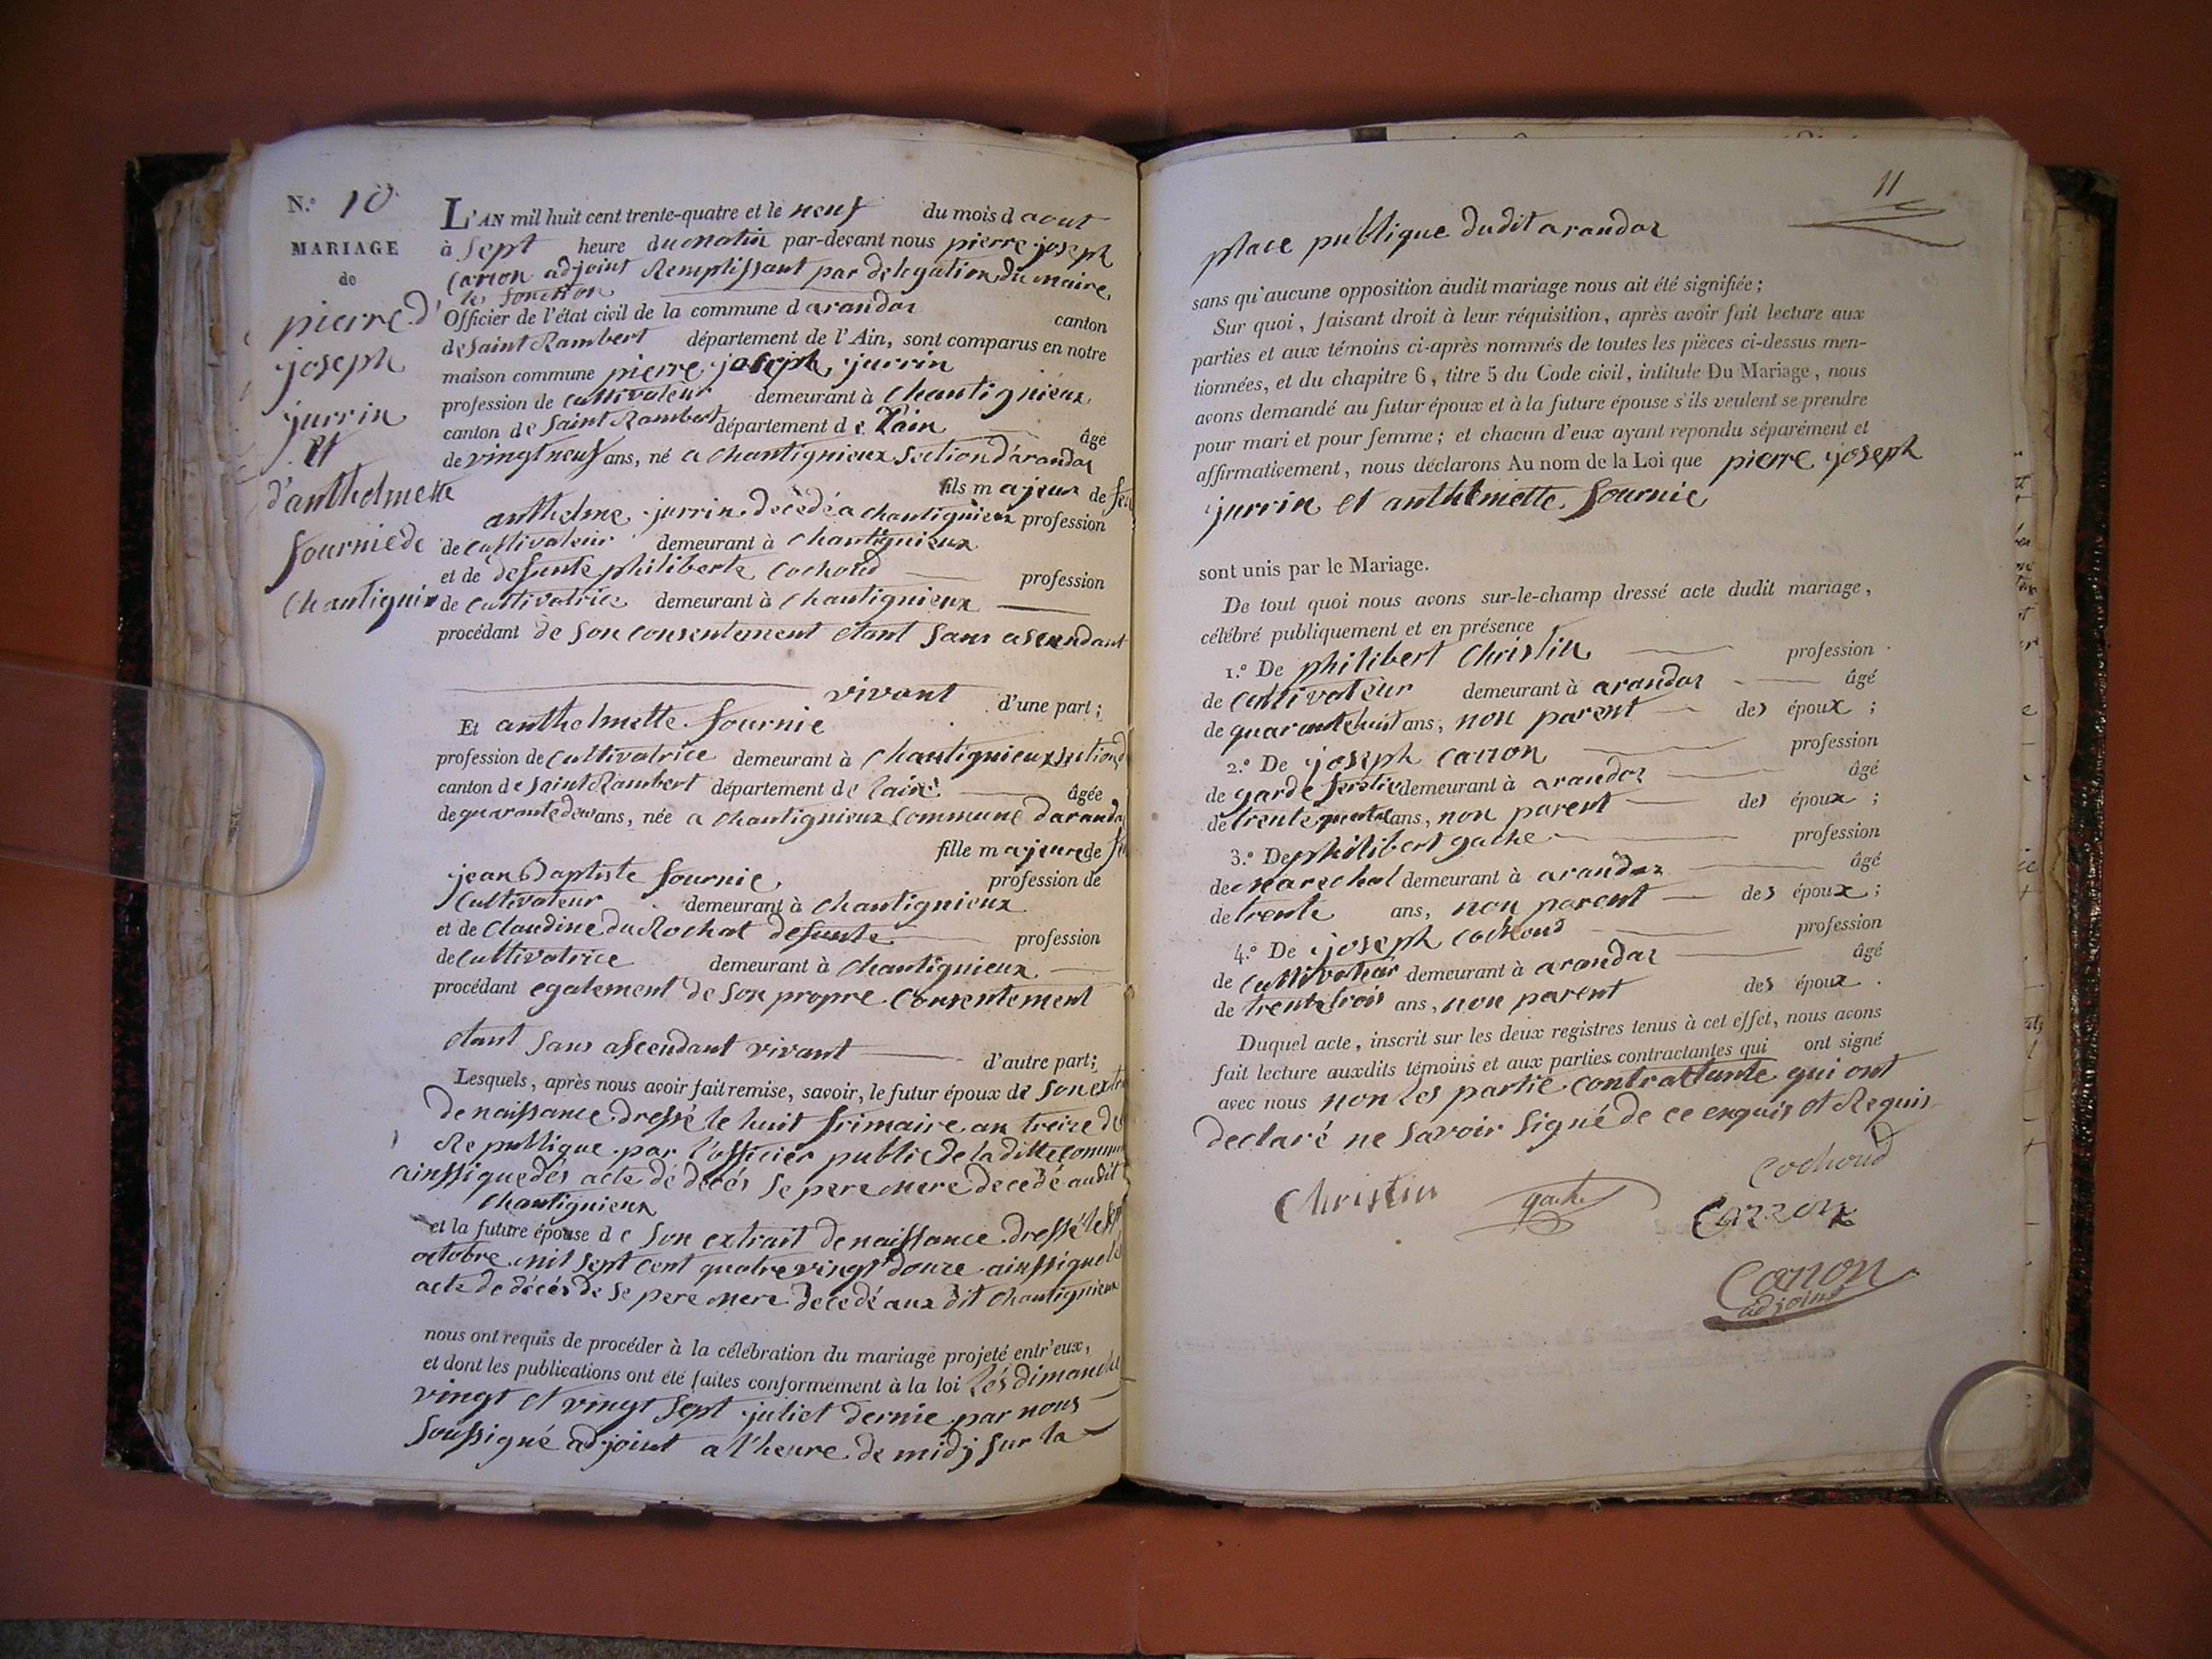 N.° 10
MARIAGE
de
pierre
joseph
jurrin
et
d'anthelmette
fournie de
Chantignix
L'AN mil huit cent trente-quatre et le neuf du mois d aout
à sept heure du matin par-devant nous pierre joseph
Carron adjoint Remplissant par delegation du maire
les fonction
d' Officier de l'état civil de la commune d arandas canton
de Saint Rambert département de l'Ain, sont comparus en notre
maison commune pierre joseph jurrin
profession de cultivateur demeurant à Chantignieux
canton de Saint Rambert département d e Lain âgé
de vingt neuf ans, né a chantignieux section d'arandas
fils m ajeur de feu
anthelme jurrin decèdé a chantignieux profession
de cultivateur demeurant à Chantignieux
et de defunte philiberte Cochoud profession
de Cultivatrice demeurant à Chantignieux
procédant de son consentement etant sans ascendant
vivant d'une part;
Et anthelmette fournie
profession de Cultivatrice demeurant à Chantignieux section d
canton de Saint Rambert département de lain âgée
de quarante deux ans, née a chantignieux Commune daranda
fille m ajeure de
jean Baptiste fournie profession de
Cultivateur demeurant à Chantignieux
et de Claudine du Rochat defunte profession
de Cultivatrice demeurant à Chantignieux
procédant egalement de son propre Consentement
etant sans ascendant vivant d'autre part;
Lesquels, après nous avoir fait remise, savoir, le futur époux de son
de naissance dressé le huit frimaire an treize de
Republique par l'officier public de la ditte
ainssi que des acte de decés se pere mere decedé audit
Chantignieux
et la future épouse d e son extrait de naissance dressé le
octobre mil sept cent quatre vingt douze ainssi que
acte de décés de se pere mere decedé aux dit chantignieux
nous ont requis de procéder à la célébration du mariage projeté entr'eux,
et dont les publications ont été faites conformément à la loi les dimanche
vingt et vingt sept juliet dernie par nous
soussigné adjoint a l'heure de midj sur la
11
place publique dudit arandas
sans qu'aucune opposition audit mariage nous ait été signifiée;
Sur quoi, faisant droit à leur réquisition, après avoir fait lecture aux
parties et aux témoins ci-après nommés de toutes les pièces ci-dessus men-
tionnées, et du chapitre 6, titre 5 du Code civil, intitule Du Mariage, nous
avons demandé au futur époux et à la future épouse s'ils veulent se prendre
pour mari et pour femme; et chacun d'eux ayant repondu séparément et
affirmativement, nous déclarons Au nom de la Loi que pierre joseph
jurrin et anthelmette fournie
sont unis par le Mariage.
De tout quoi nous avons sur-le-champ dressé acte dudit mariage,
célébré publiquement et en présence
1.° De philibert Christin profession
de Cultivateur demeurant à arandas âgé
de quarante huit ans, non parent des époux ;
2.° De joseph Carron profession
de garde forestie demeurant à arandas âgé
de trente quatre ans, non parent des époux ;
3.° De philibert gache profession
de marechal demeurant à arandas âgé
de trente ans, non parent des époux ;
4.° De joseph Cochoud profession
de Cultivateur demeurant à arandas âgé
de trente trois ans, non parent des époux .
Duquel acte, inscrit sur les deux registres tenus à cet effet, nous avons
fait lecture auxdits témoins et aux parties contractantes qui ont signé
avec nous non les partie contractante qui ont
declaré ne savoir signé de ce enquis et Requis
Cochoud
Christin gache Carron
Carron
adjoint